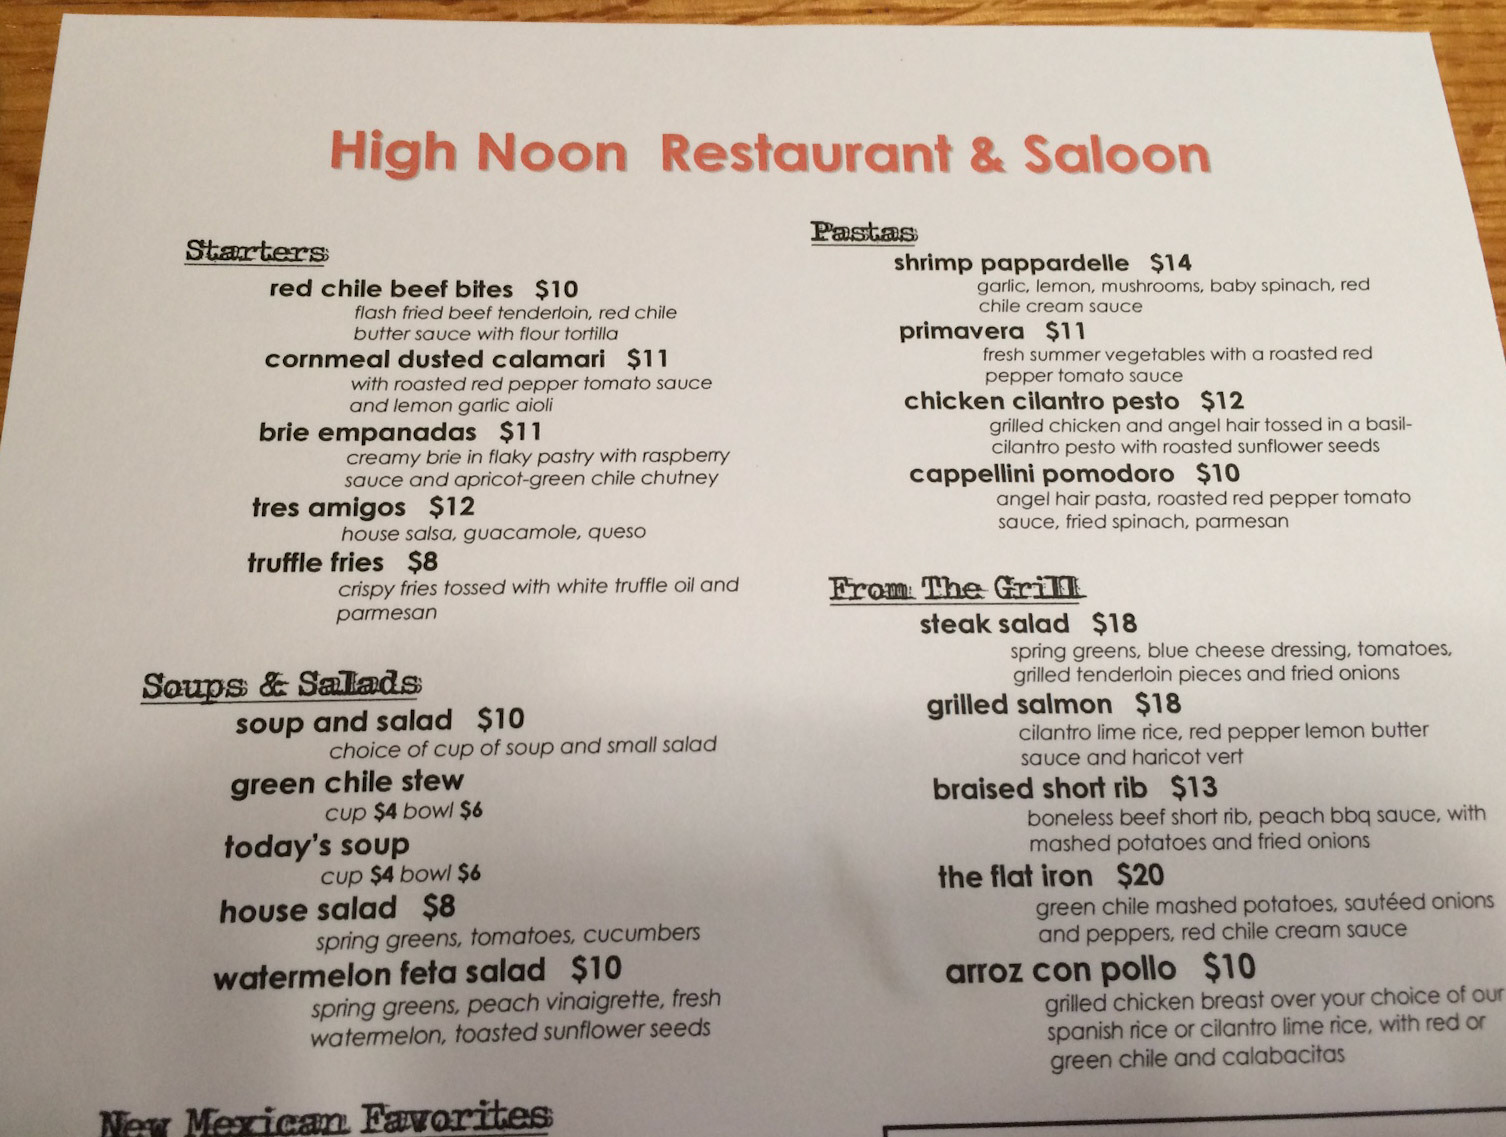 High Noon Restaurant & Saloon
Starters
red chile beef bites $10
flash fried beef tenderloin, red chile
butter sauce with flour tortilla
cornmeal dusted calamari $11
with roasted red pepper tomato sauce
and lemon garlic aioli
brie empanadas $11
creamy brie in flaky pastry with raspberry
sauce and apricot-green chile chutney
tres amigos $12
house salsa, guacamole, queso
truffle fries $8
crispy fries tossed with white truffle oil and
parmesan
Soups & Salads
soup and salad $10
choice of cup of soup and small salad
green chile stew
cup $4 bowl $6
today's soup
cup $4 bowl $6
house salad $8
spring greens, tomatoes, cucumbers
watermelon feta salad $10
spring greens, peach vinaigrette, fresh
watermelon, toasted sunflower seeds
New Mexican Favorites
Pastas
shrimp pappardelle $14
garlic, lemon, mushrooms, baby spinach, red
chile cream sauce
primavera $11
fresh summer vegetables with a roasted red
pepper tomato sauce
chicken cilantro pesto $12
grilled chicken and angel hair tossed in a basil-
cilantro pesto with roasted sunflower seeds
cappellini pomodoro $10
angel hair pasta, roasted red pepper tomato
sauce, fried spinach, parmesan
From The Grill
steak salad $18
spring greens, blue cheese dressing, tomatoes,
grilled tenderloin pieces and fried onions
grilled salmon $18
cilantro lime rice, red pepper lemon butter
sauce and haricot vert
braised short rib $13
boneless beef short rib, peach bbq sauce, with
mashed potatoes and fried onions
the flat iron $20
green chile mashed potatoes, sautéed onions
and peppers, red chile cream sauce
arroz con pollo $10
grilled chicken breast over your choice of our
spanish rice or cilantro lime rice, with red or
green chile and calabacitas